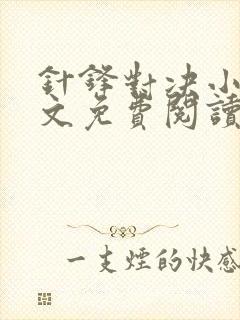 針鋒對決小
文免費閱讀
一支煙的快感